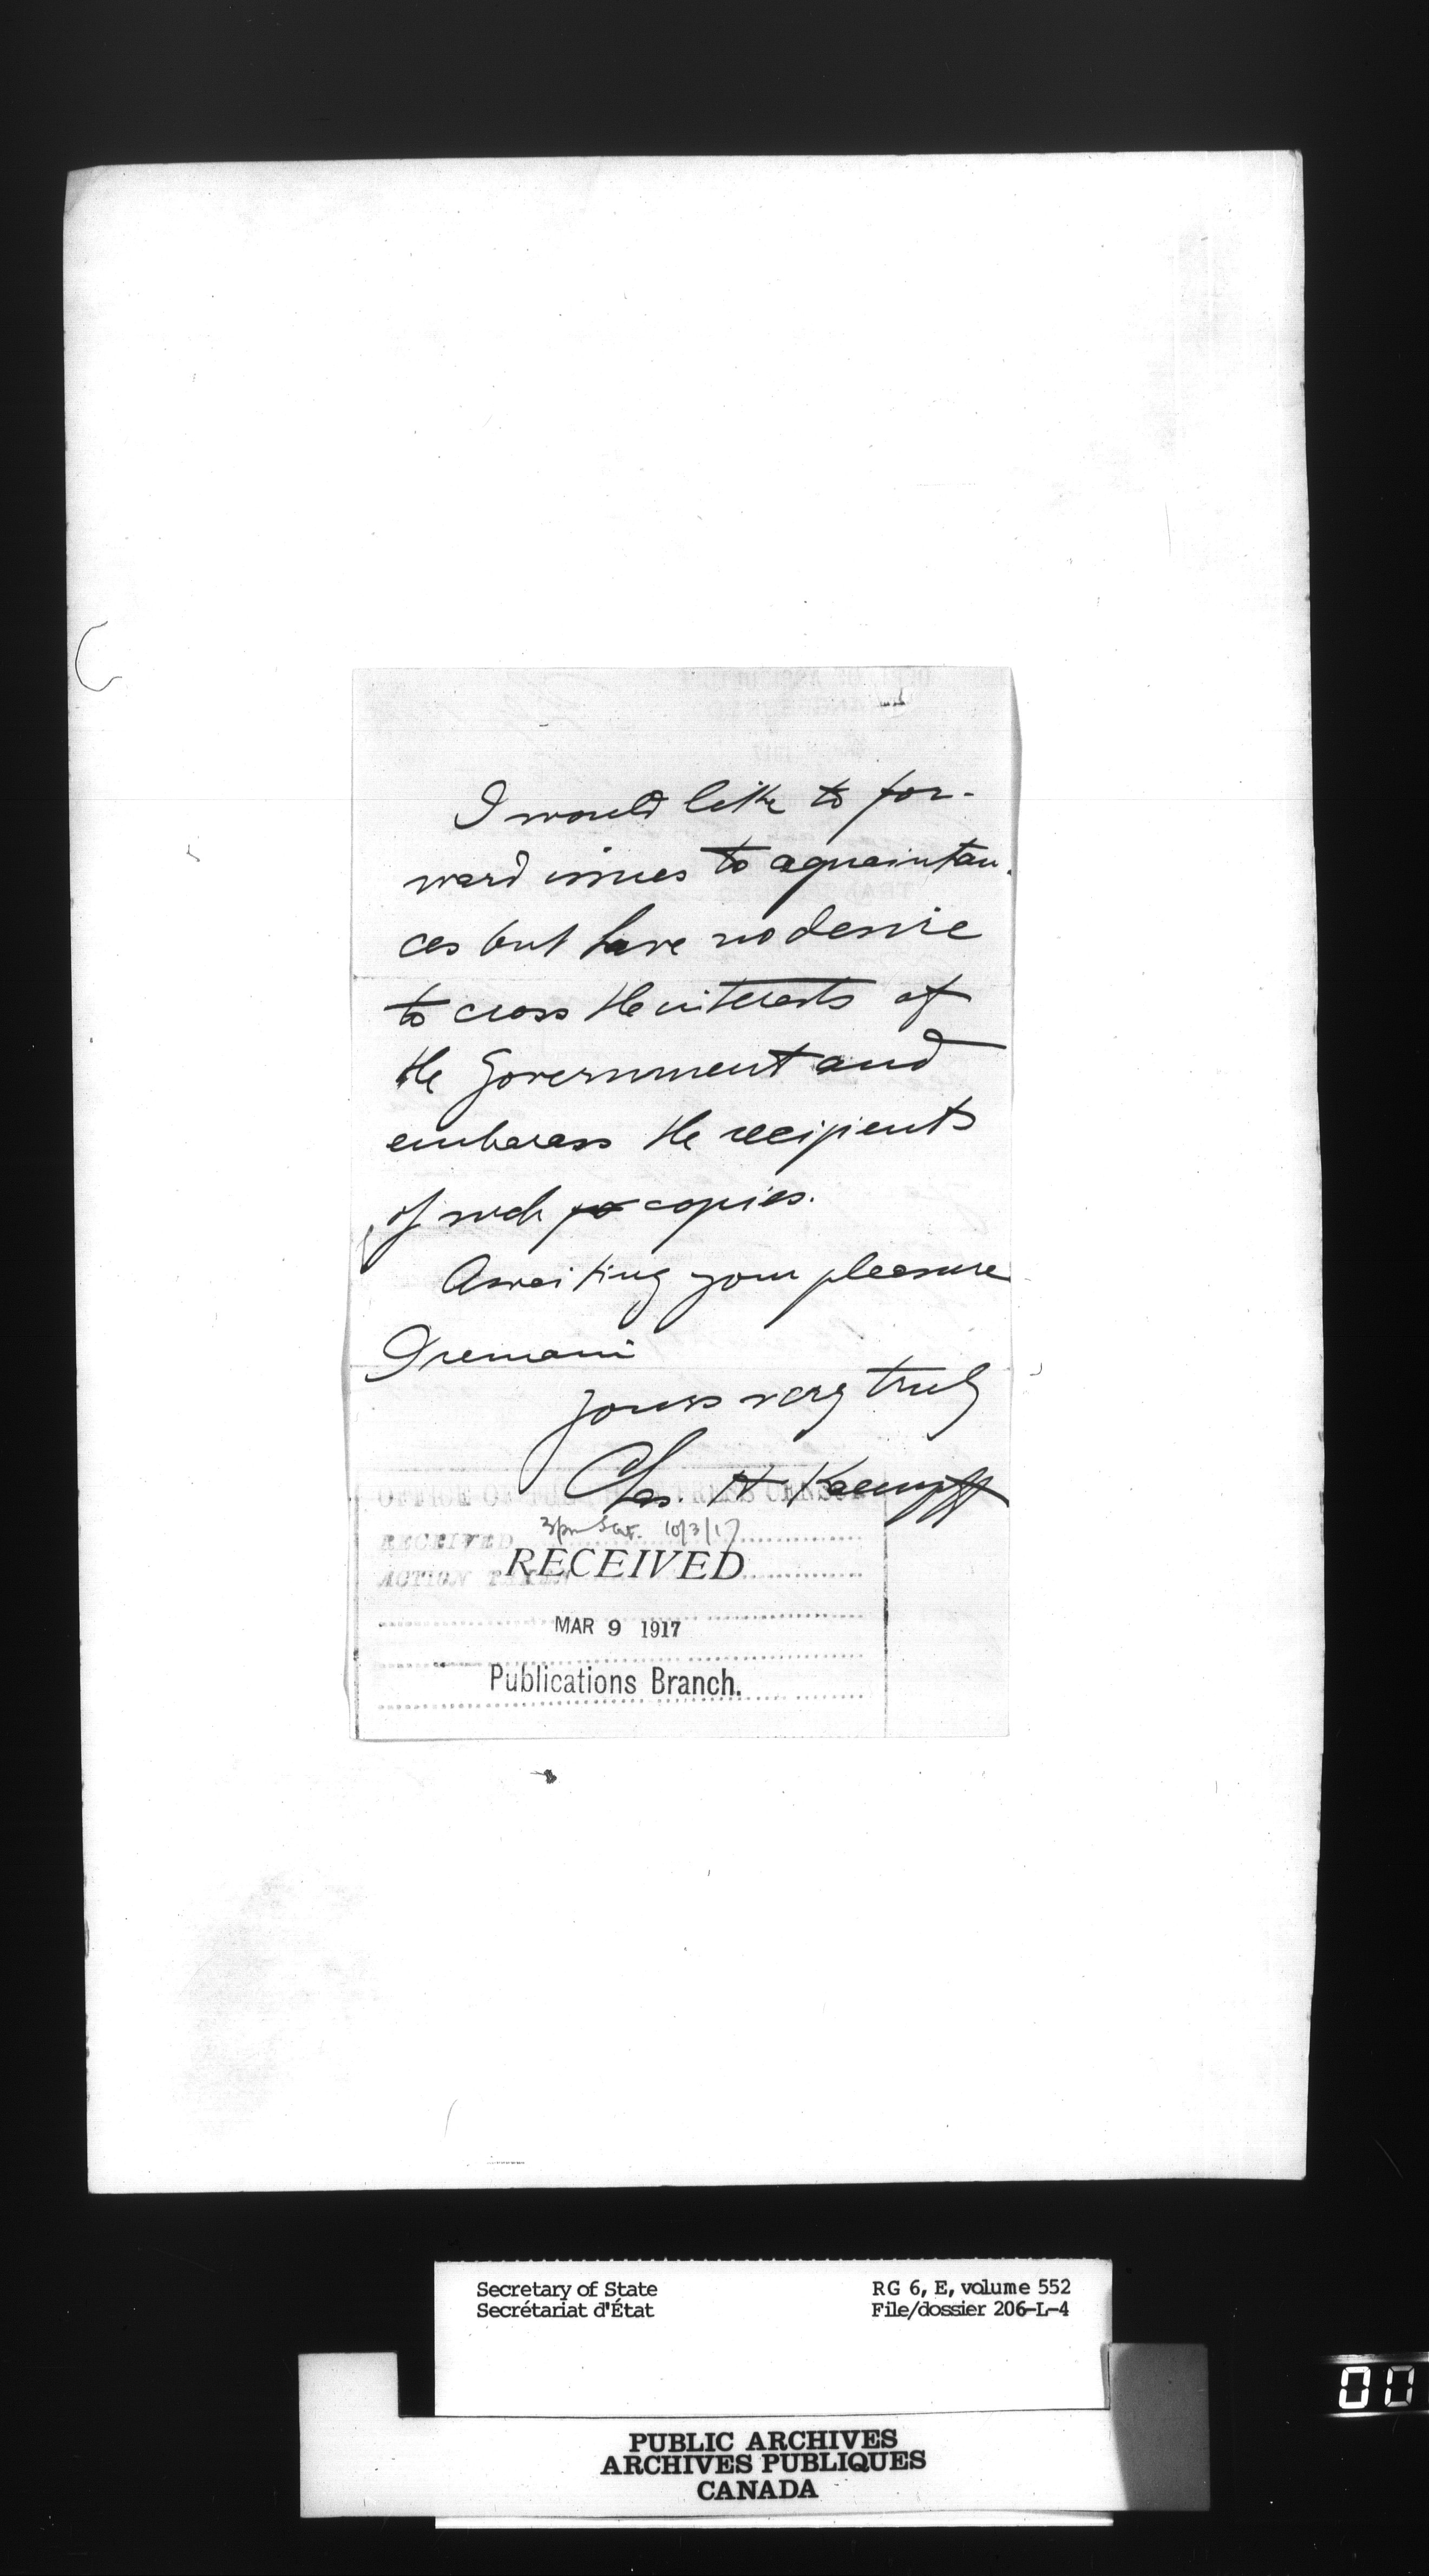 I would like to for-
ward issues to aquaintan-
ces but have no desire
to cross the interests of
the Government and
embarass the recipients
of such copies.
Awaiting your pleasure
I remain
yours very truly
Chas. H Kaempff
OFFICE OF THE PRESS CENSOR
3 pm Sat. 10/3/17
RECEIVED
RECEIVED
ACTION TAKEN
MAR 9 1917
Publications Branch.
Secretary of State RG 6, E, volume 552
Secrétariat d'État File/dossier 206-L-4
PUBLIC ARCHIVES
ARCHIVES PUBLIQUES
CANADA
00